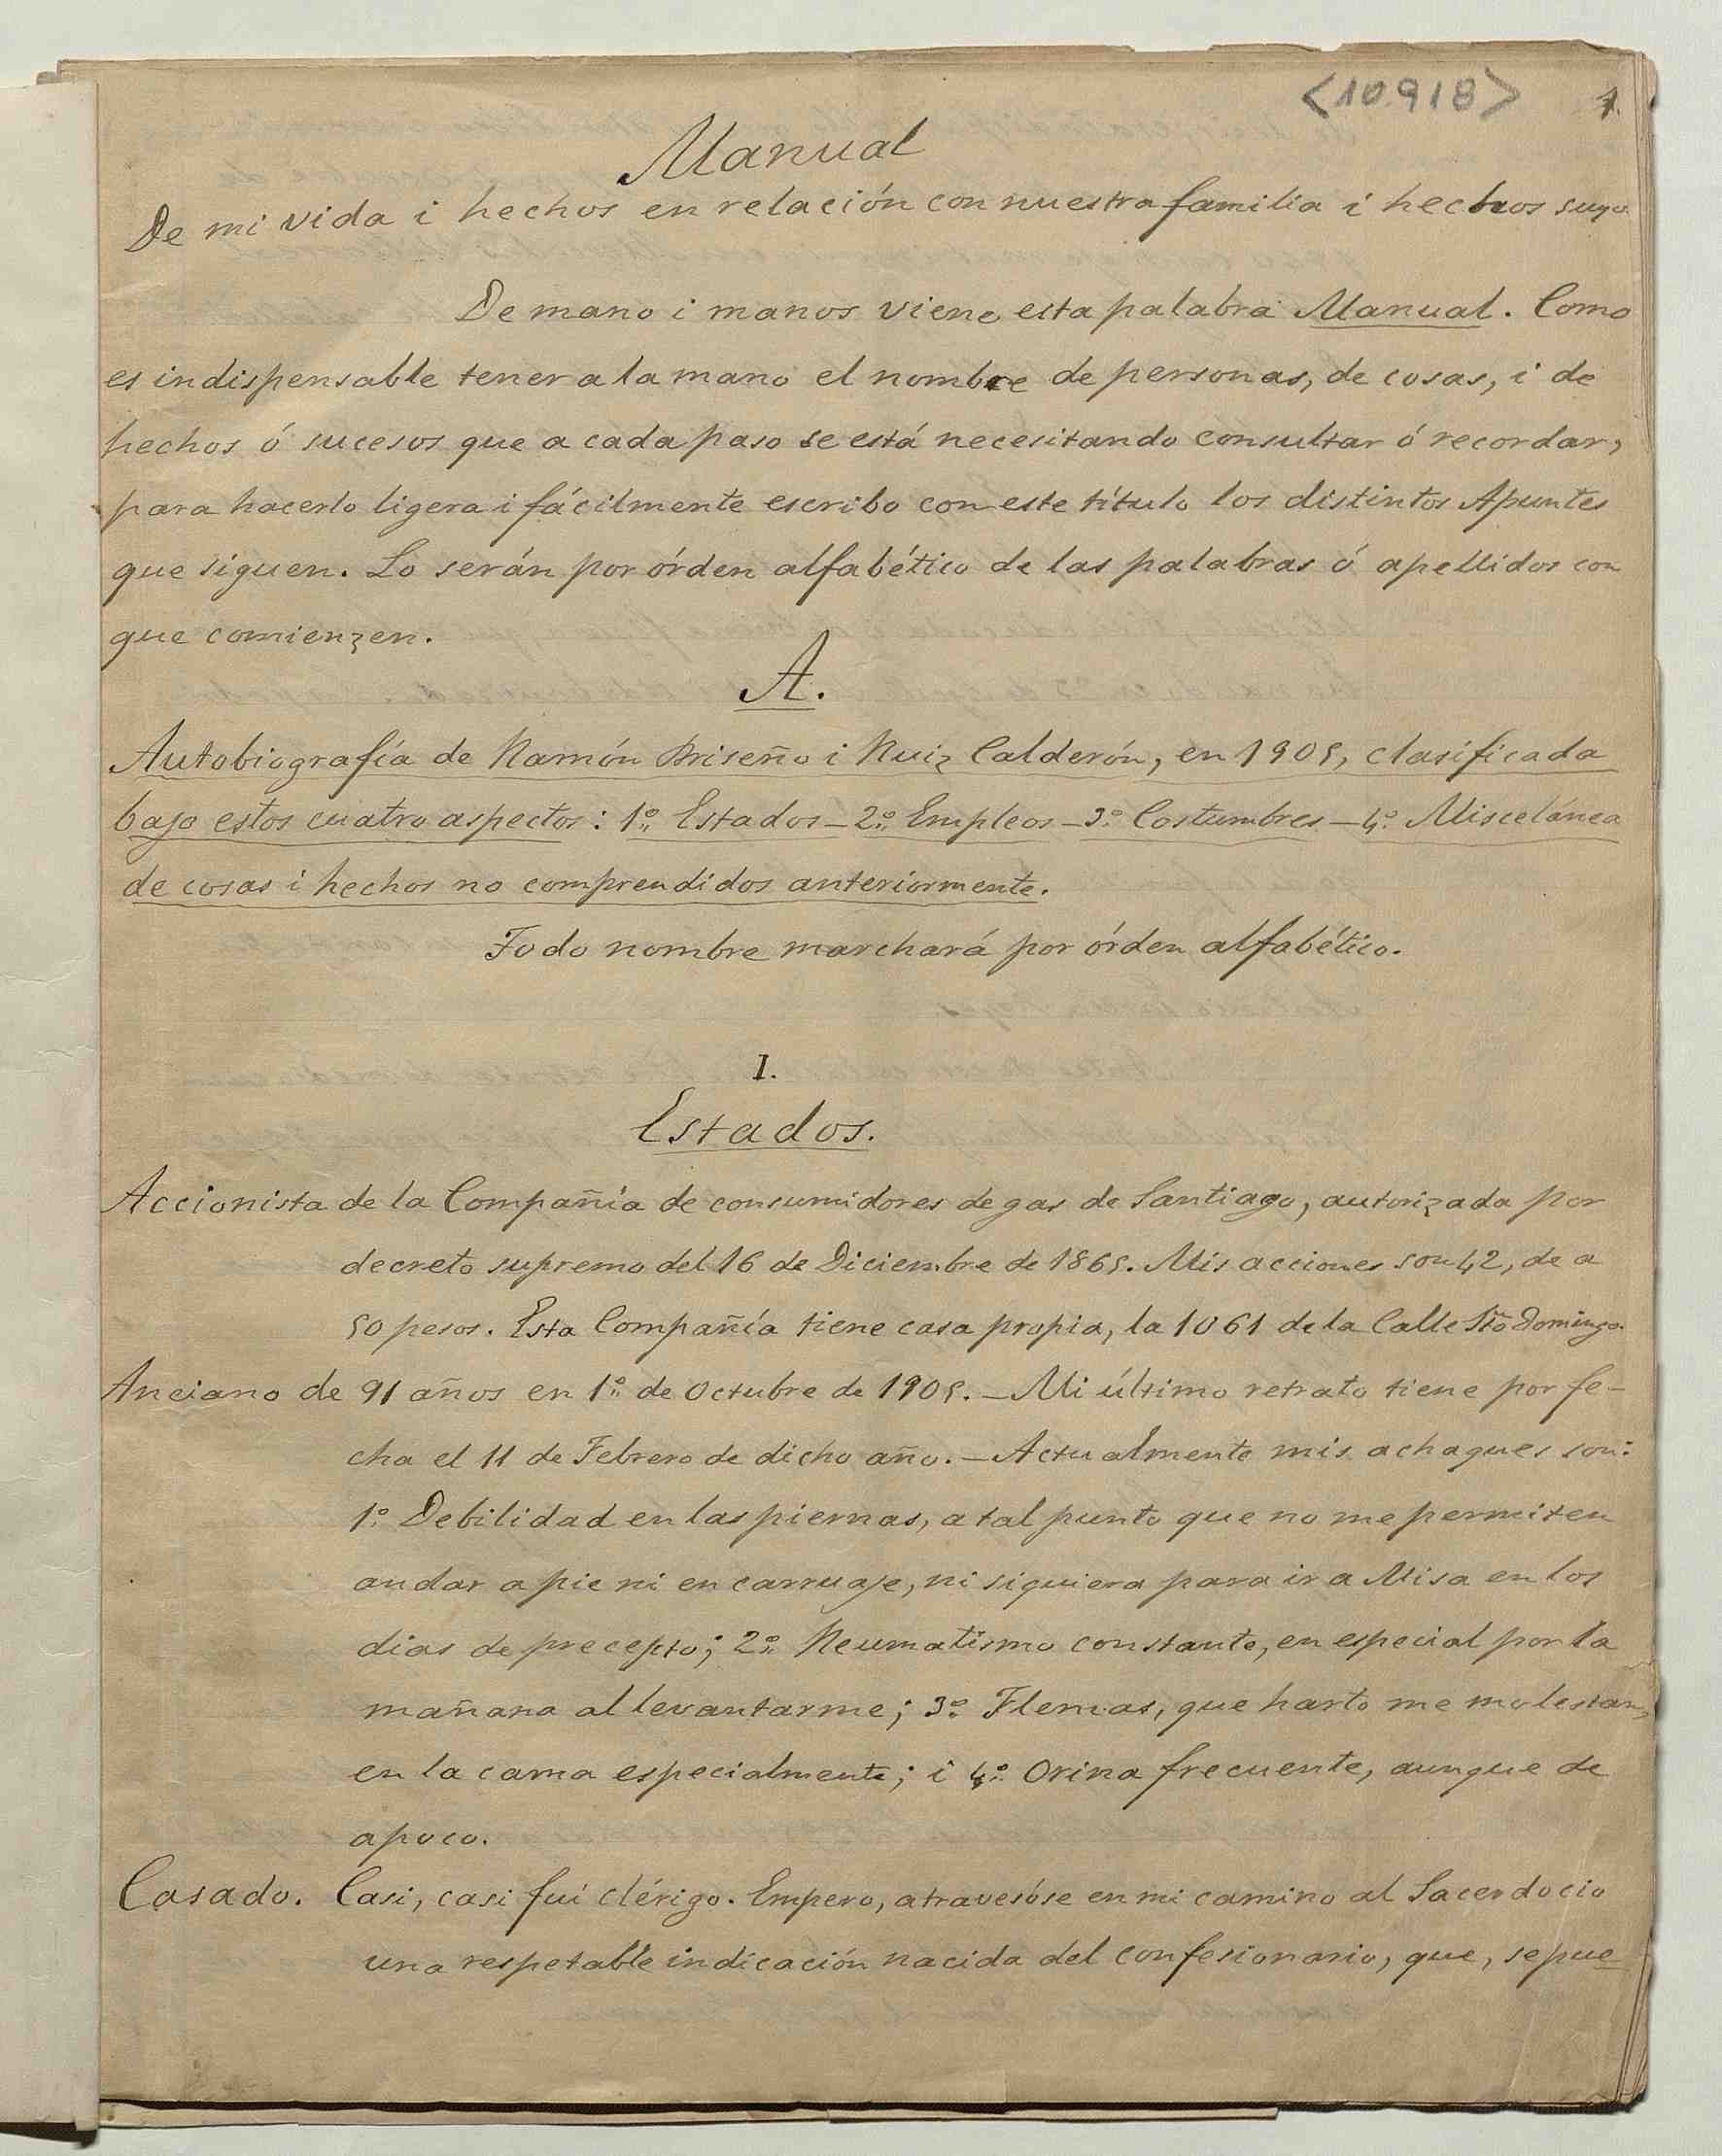 <10.918> 1.
Manual
De mi vida i hechos en relación con nuestra familia i hechos suyos
De mano i manos viene esta palabra Manual. Como
es indispensable tener a la mano el nombre de personas, de cosas, i de
hechos ó sucesos que a cada paso se está necesitando consultar ó recordar,
para hacerlo ligera i fácilmente escribo con este título los distintos Apuntes
que siguen. Lo serán por órden alfabético de las palabras ó apellidos con
que comienzen.
A.
Autobiografía de Ramón Briseño i Ruiz Calderón, en 1905, clasificada
bajo estos cuatro aspectos: 1º Estados - 2º Empleos - 3º Costumbres - 4º Miscelánea
de cosas i hechos no comprendidos anteriormente.
Todo nombre marchará por órden alfabético.
I.
Estados.
Accionista de la Compañía de consumidores de gas de Santiago, autorizada por
decreto supremo del 16 de Diciembre de 1865. Mis acciones son 42, de a
50 pesos. Esta Compañía tiene casa propia, la 1061 de la Calle Stõ Domingo.
Anciano de 91 años en 1º de Octubre de 1905. - Mi último retrato tiene por fe-
cha el 11 de Febrero de dicho año. - Actualmente mis achaques son:
1º Debilidad en las piernas, a tal punto que no me permiten
andar a pie ni en carruaje, ni siquiera para ir a Misa en los
dias de precepto; 2º Reumatismo constante, en especial por la
mañana al levantarme; 3º Flemas, que harto me molestan,
en la cama especialmente; i 4º Orina frecuente, aunque de
apoco.
Casado. Casi, casi fuí clérigo. Empero, atravesóse en mi camino al Sacerdocio
una respetable indicación nacida del confesionario, que, se pue